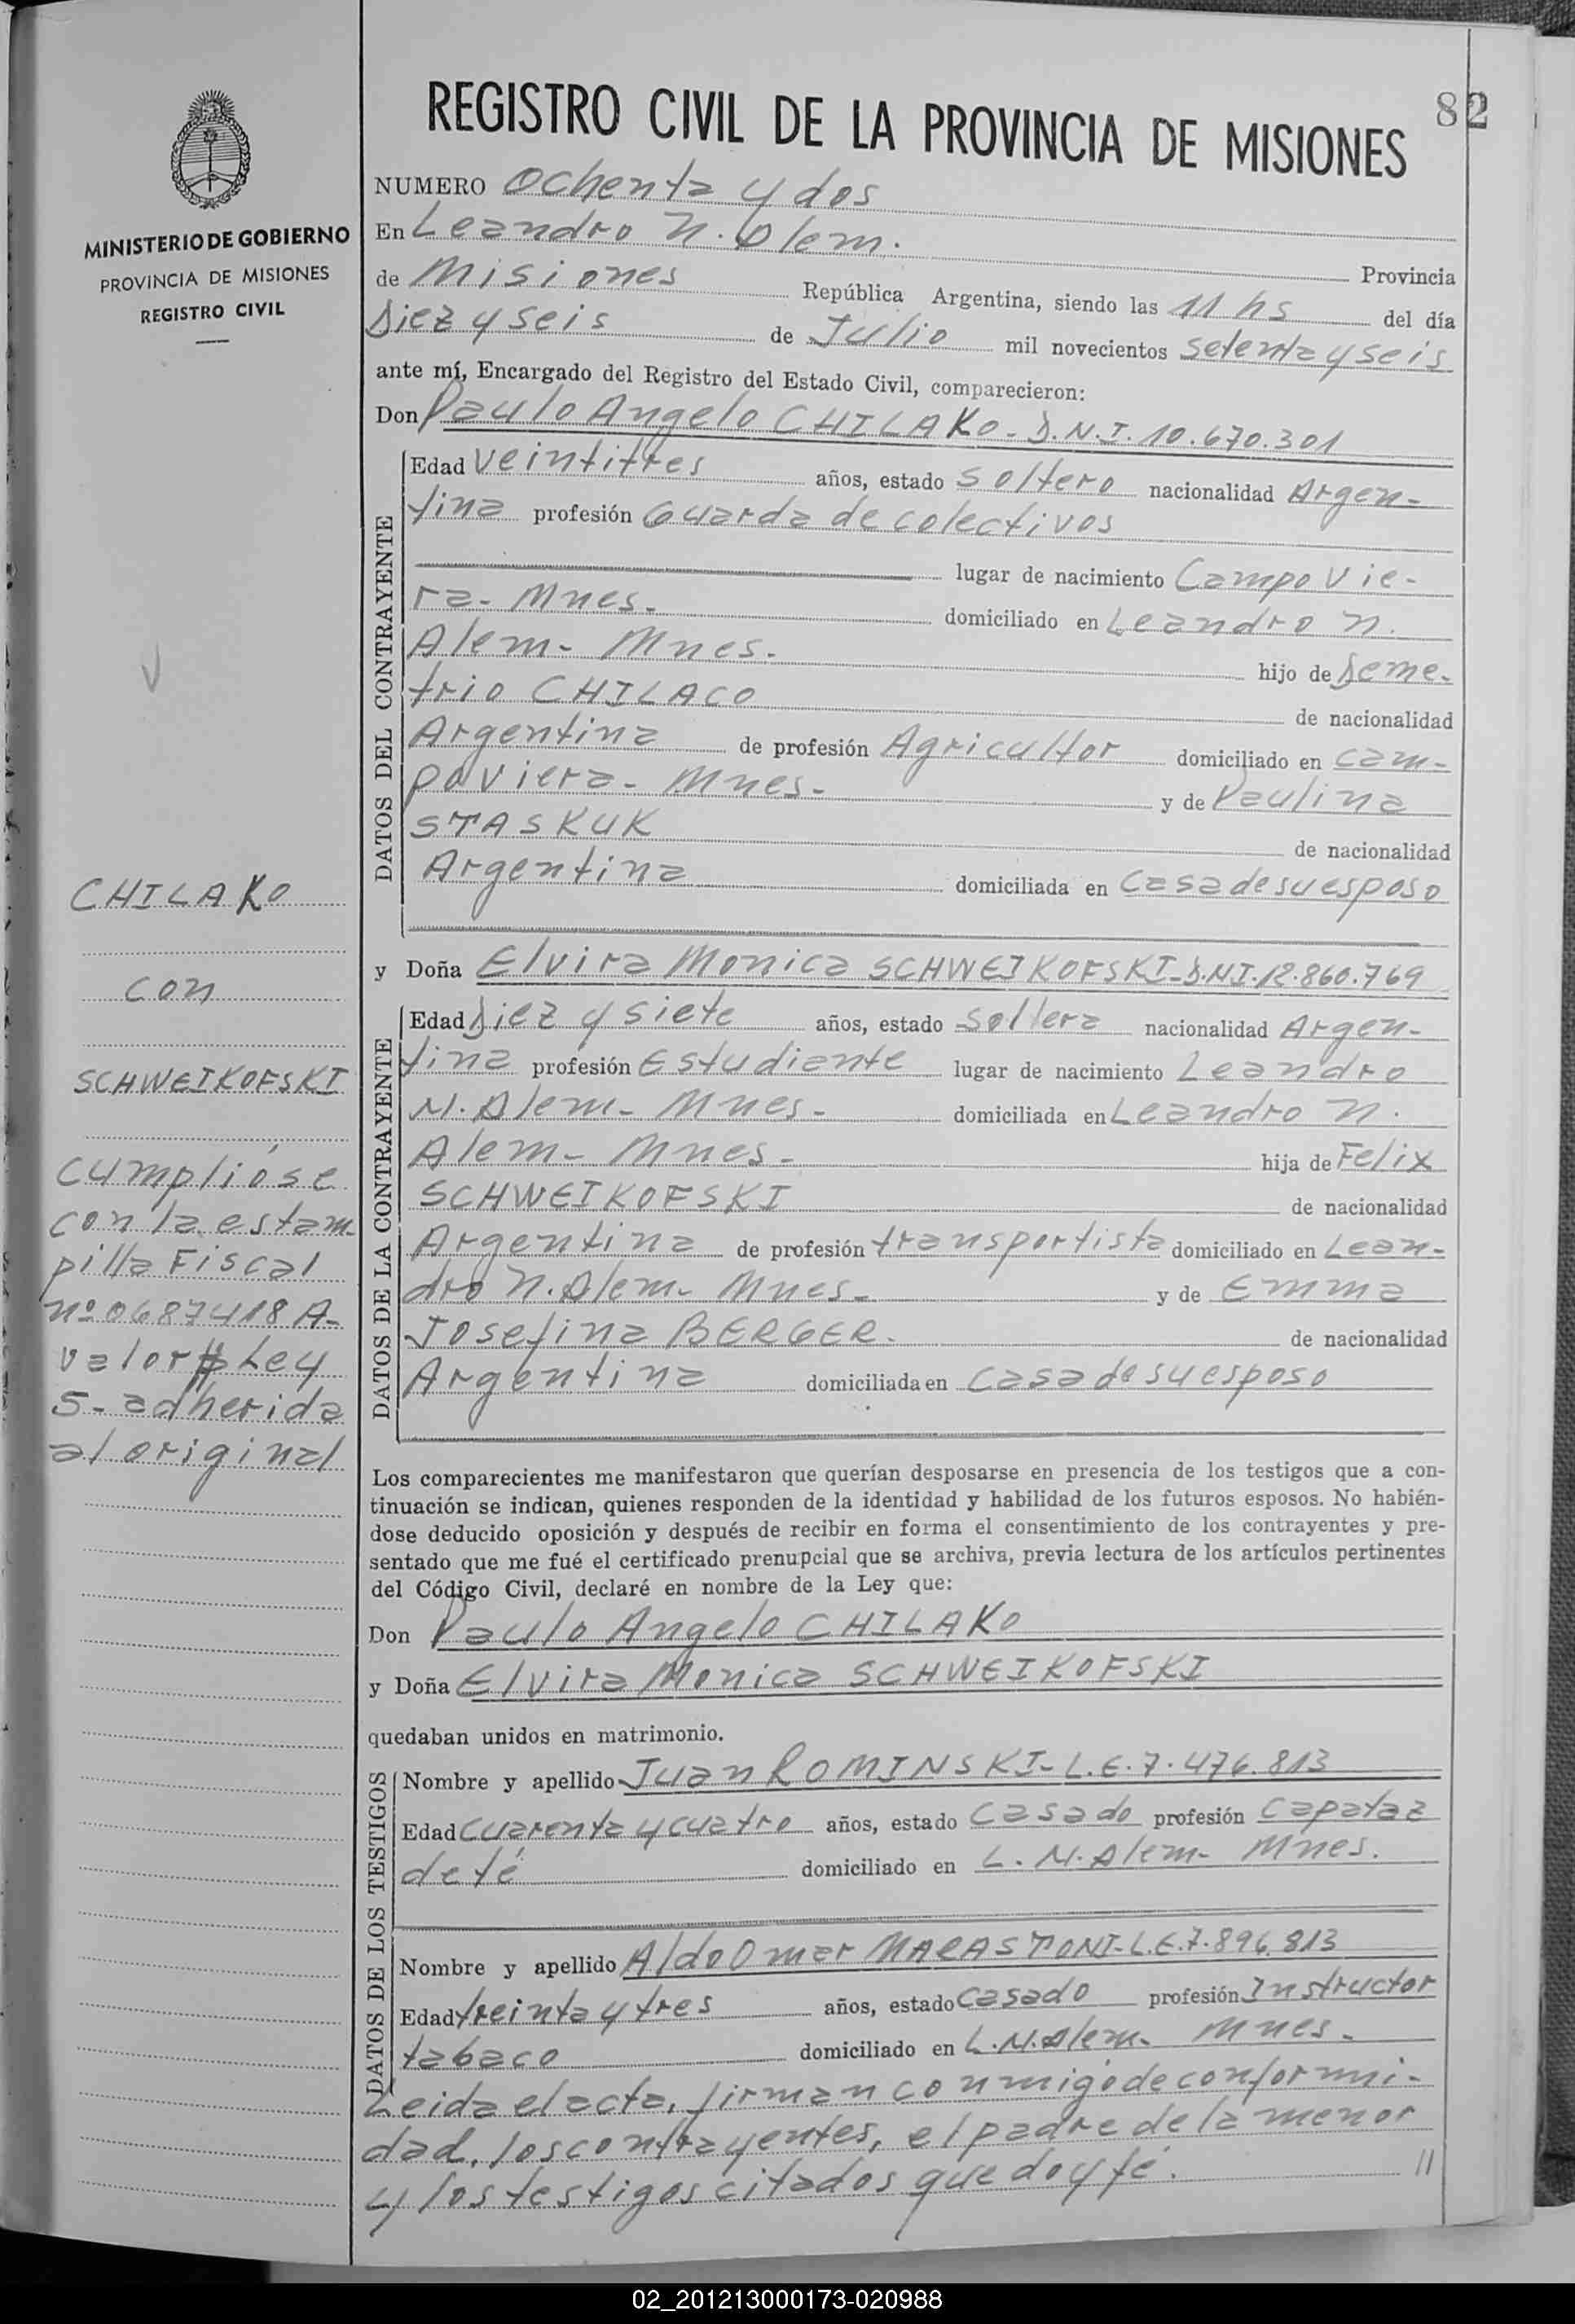 82
REGISTRO CIVIL DE LA PROVINCIA DE MISIONES
MINISTERIO DE GOBIERNO
PROVINCIA DE MISIONES
REGISTRO CIVIL
NUMERO Ochenta y dos
En Leandro N. Alem. Provincia
de Misiones República Argentina, siendo las 11 hs del día
Diez y seis de Julio mil novecientos setenta y seis
ante mí, Encargado del Registro del Estado Civil, comparecieron:
Don Paulo Angelo CHILAKO - D.N.I. 10.670.301
DATOS DEL CONTRAYENTE
Edad veintitres años, estado soltero nacionalidad Argen-
tina profesión Guarda de colectivos
lugar de nacimiento Campo Vie-
ra - Mnes. domiciliado en Leandro N.
Alem - Mnes. hijo de Deme-
trio CHILACO de nacionalidad
Argentina de profesión Agricultor domiciliado en cam-
po viera - Mnes. y de Paulina
STASKUK de nacionalidad
Argentina domiciliada en casa de su esposo
y Doña Elvira Monica SCHWEIKOFSKI - D.N.I. 12.860.769
DATOS DE LA CONTRAYENTE
Edad Diez y siete años, estado soltera nacionalidad Argen-
tina profesión Estudiante lugar de nacimiento Leandro
N. Alem - Mnes - domiciliada en Leandro N.
Alem - Mnes - hija de Felix
SCHWEIKOFSKI de nacionalidad
Argentina de profesión transportista domiciliado en Lean-
dro N. Alem - Mnes - y de Emma
Josefina BERGER. de nacionalidad
Argentina domiciliada en casa de su esposo
CHILAKO
con
SCHWEIKOFSKI
cumplióse
con la estam-
pilla Fiscal
nº 0687418 A-
valor $ Ley
5 - adherida
al original
Los comparecientes me manifestaron que querían desposarse en presencia de los testigos que a con-
tinuación se indican, quienes responden de la identidad y habilidad de los futuros esposos. No habién-
dose deducido oposición y después de recibir en forma el consentimiento de los contrayentes y pre-
sentado que me fué el certificado prenupcial que se archiva, previa lectura de los artículos pertinentes
del Código Civil, declaré en nombre de la Ley que:
Don Paulo Angelo CHILAKO
y Doña Elvira Monica SCHWEIKOFSKI
quedaban unidos en matrimonio.
DATOS DE LOS TESTIGOS
Nombre y apellido Juan ROMINSKI - L.E. 7.476.813
Edad cuarenta y cuatro años, estado casado profesión capataz
de té domiciliado en L. N. Alem - Mnes.
Nombre y apellido Aldo Omar MARASTONI - L.E. 7.896.813
Edad treinta y tres años, estado casado profesión Instructor
tabaco domiciliado en L. N. Alem - Mnes -
Leida el acta, firman conmigo de conformi-
dad, los contrayentes, el padre de la menor
y los testigos citados que doy fé. //
02_201213000173-020988